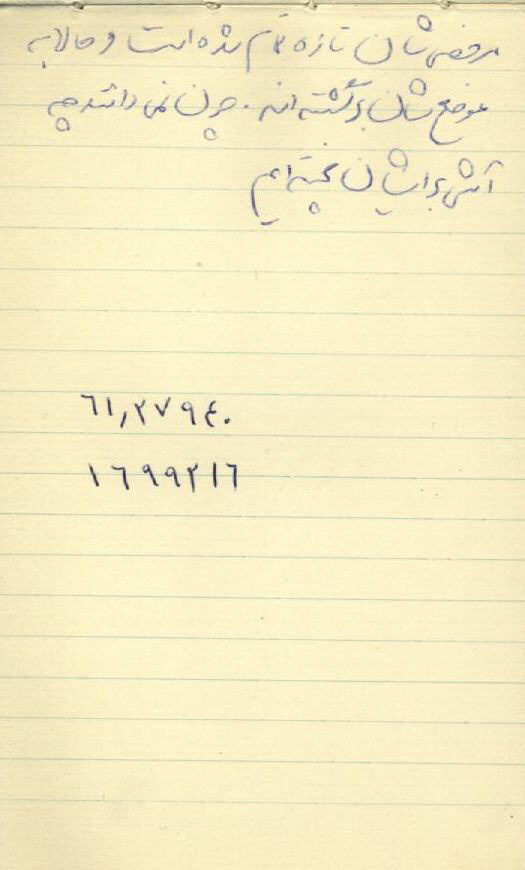 مرخصی‌شان تازه تمام شده است و حالا به
موضع‌شان برگشته‌اند. چون نمی‌دانند چه
آتشی برایشان پخته‌ایم
٦١,٢٧٩٤٠
١٦٩٩٢١٦